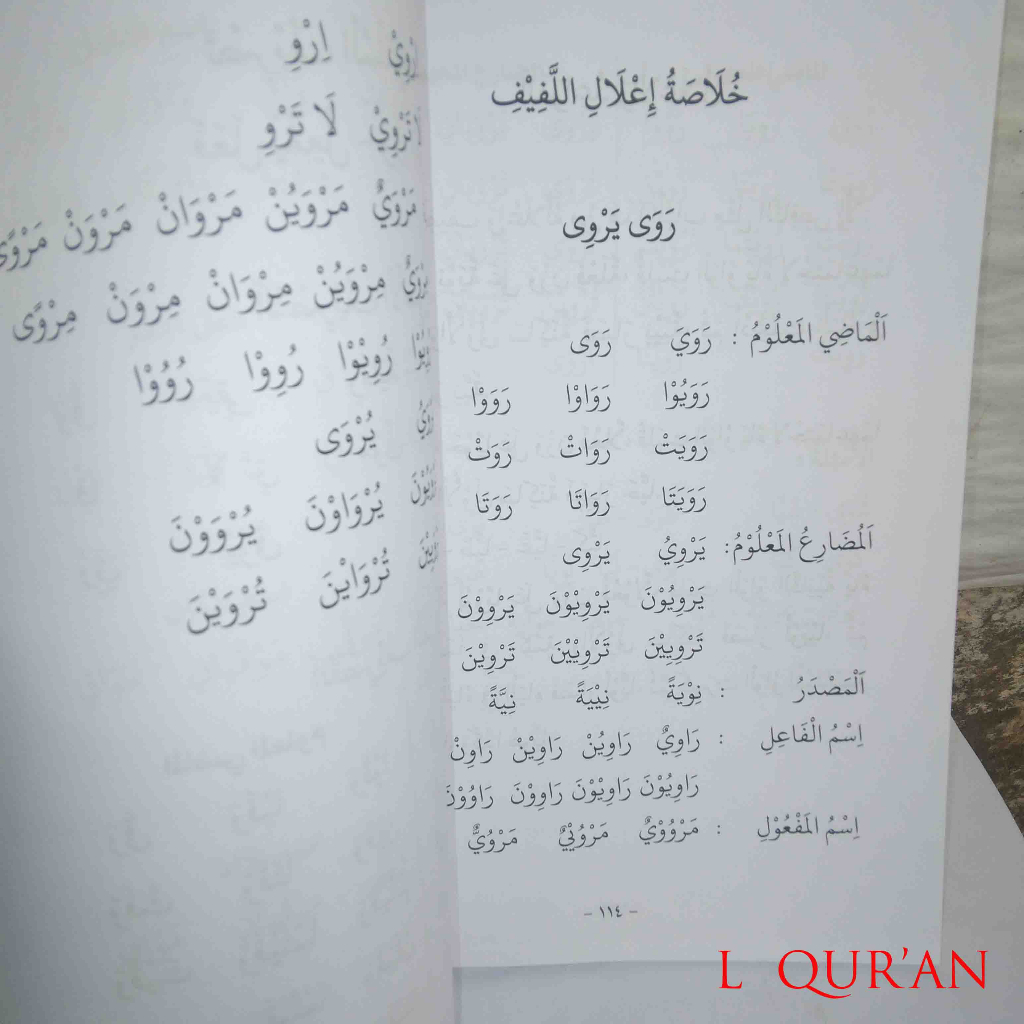 خُلَاصَةُ إِعْلَالِ اللَّفِيْفِ
رَوَى يَرْوِى
اَلْمَاضِي المَعْلُوْمُ : رَوَيَ رَوَى
رَوَيُوْا رَوَاوْا رَوَوْا
رَوَيَتْ رَوَاتْ رَوَتْ
رَوَيَتَا رَوَاتَا رَوَتَا
اَلْمُضَارِعُ المَعْلُوْمُ: يَرْوِيُ يَرْوِى
يَرْوِيُوْنَ يَرْوِيْوْنَ يَرْوِوْنَ
تَرْوِيِيْنَ تَرْوِيْيْنَ تَرْوِيْنَ
اَلْمَصْدَرُ : نِوْيَةً نِيْيَةً نِيَّةً
اِسْمُ الْفَاعِلِ : رَاوِيٌ رَاوِيُنْ رَاوِيْنْ رَاوِنْ
رَاوِيُوْنَ رَاوِيْوْنَ رَاوِوْنَ رَاوُوْنَ
اِسْمُ المَفْعُوْلِ : مَرْوُوْيٌ مَرْوُيْيٌ مَرْوُيٌّ
- ١١٤ -
اِرْوِ
لَا تَرْوِ
مَرْوَيٌ مَرْوَيُنْ مَرْوَانْ مَرْوَنْ مَرْوًى
مِرْوَيُنْ مِرْوَانْ مِرْوَنْ مِرْوًى
رُوِيْوْا رُوِوْا رُوُوْا
يُرْوَى
يُرْوَاوْنَ يُرْوَوْنَ
تُرْوَايْنَ تُرْوَيْنَ
L QUR’AN